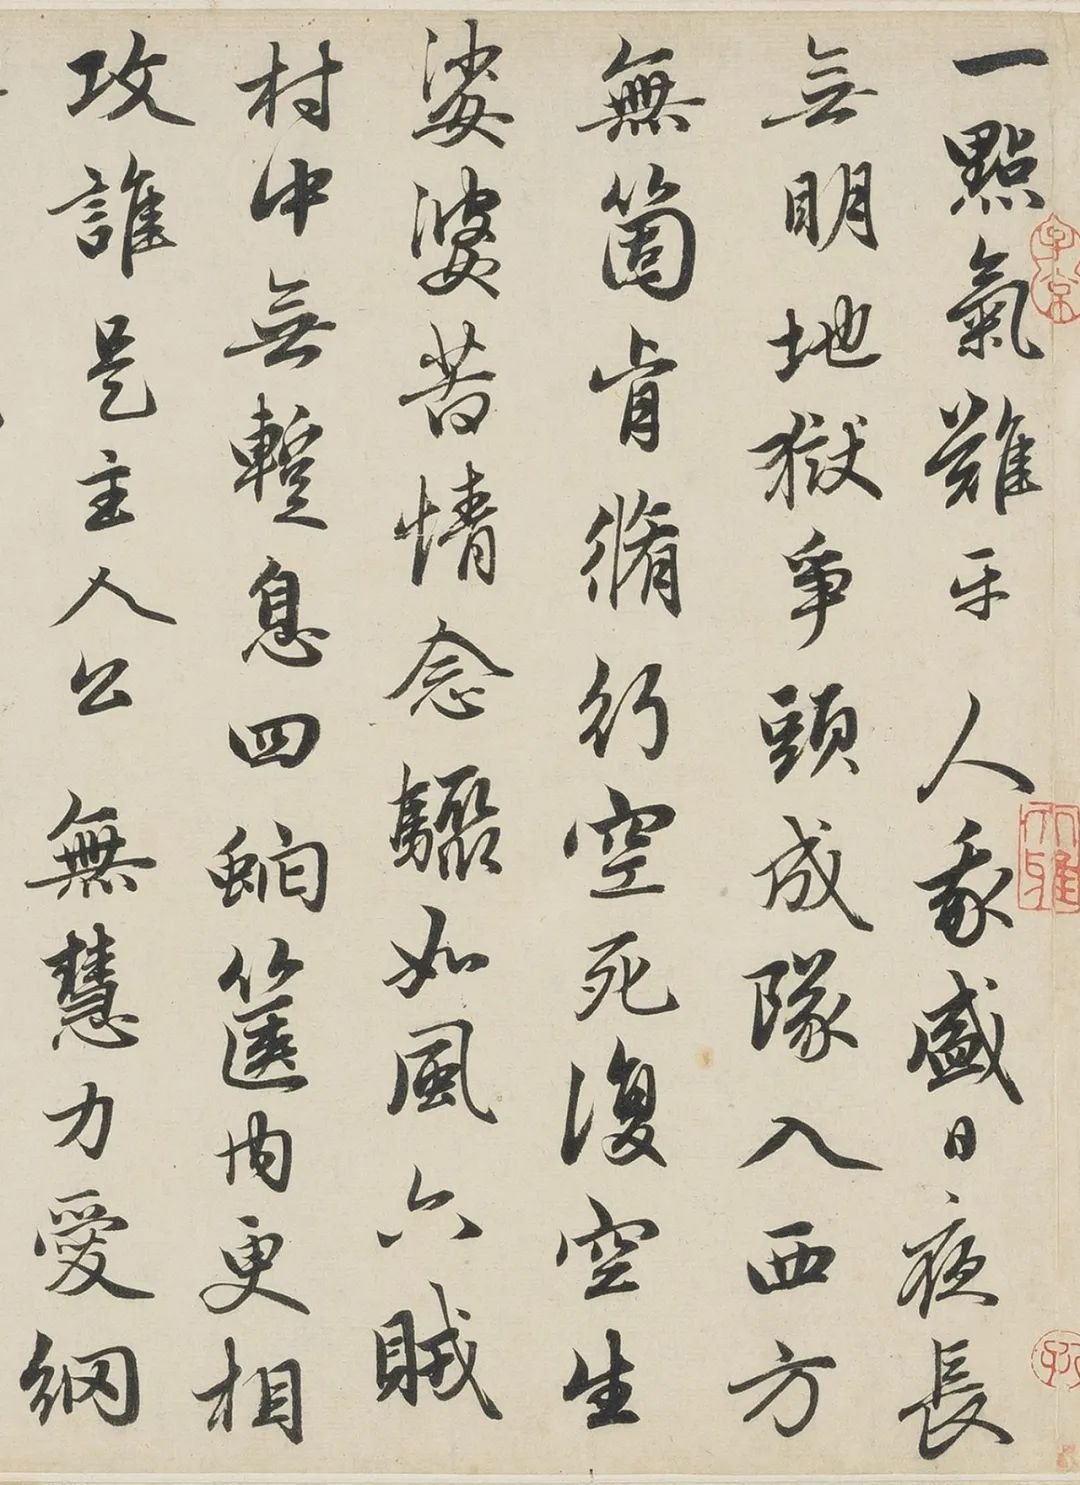 一點氣難平人我盛日夜長
無明地獄爭頭成隊入西方
無箇肯脩行空死復空生
娑婆苦情念驟如風六賊
村中無蹔息四虵篋內更相
攻誰是主人公無慧力愛網